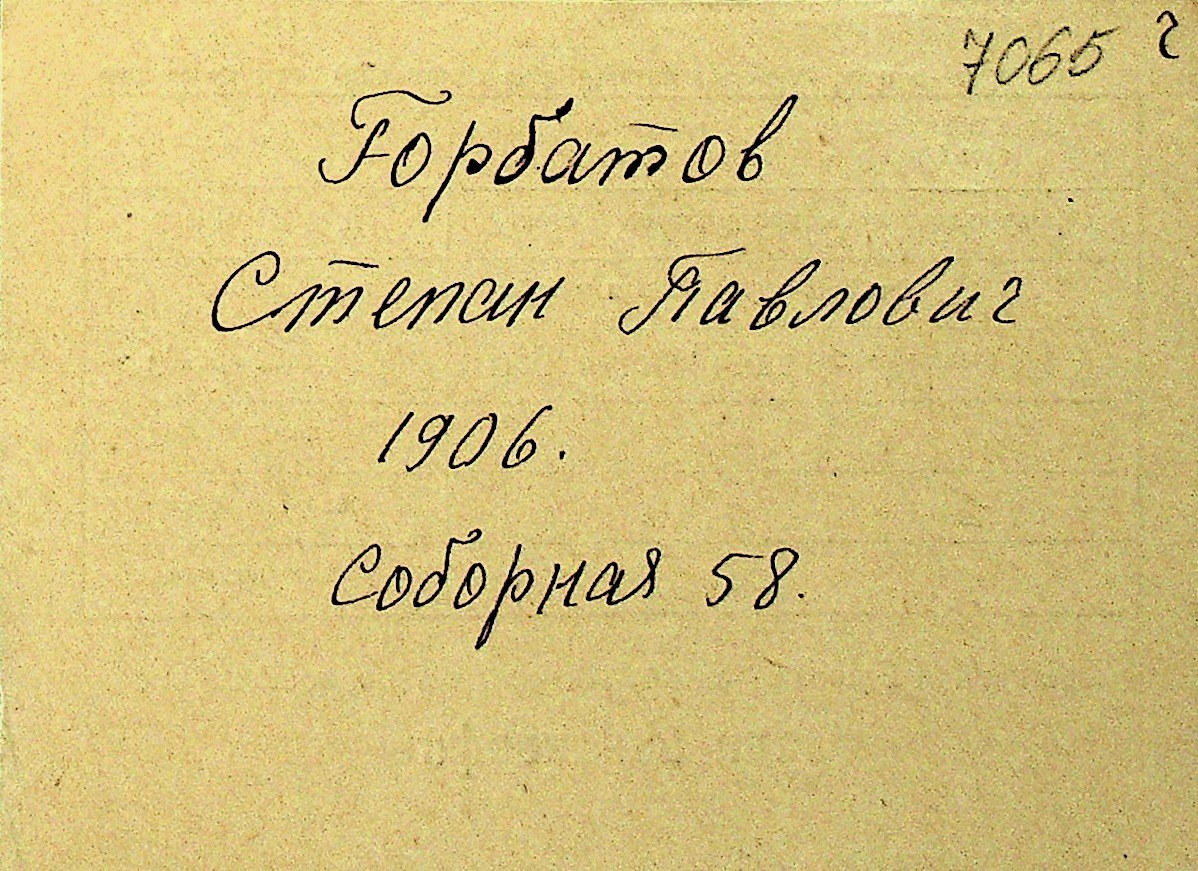 7065 г
Горбатов
Степан Павлович
1906.
Соборная 58.